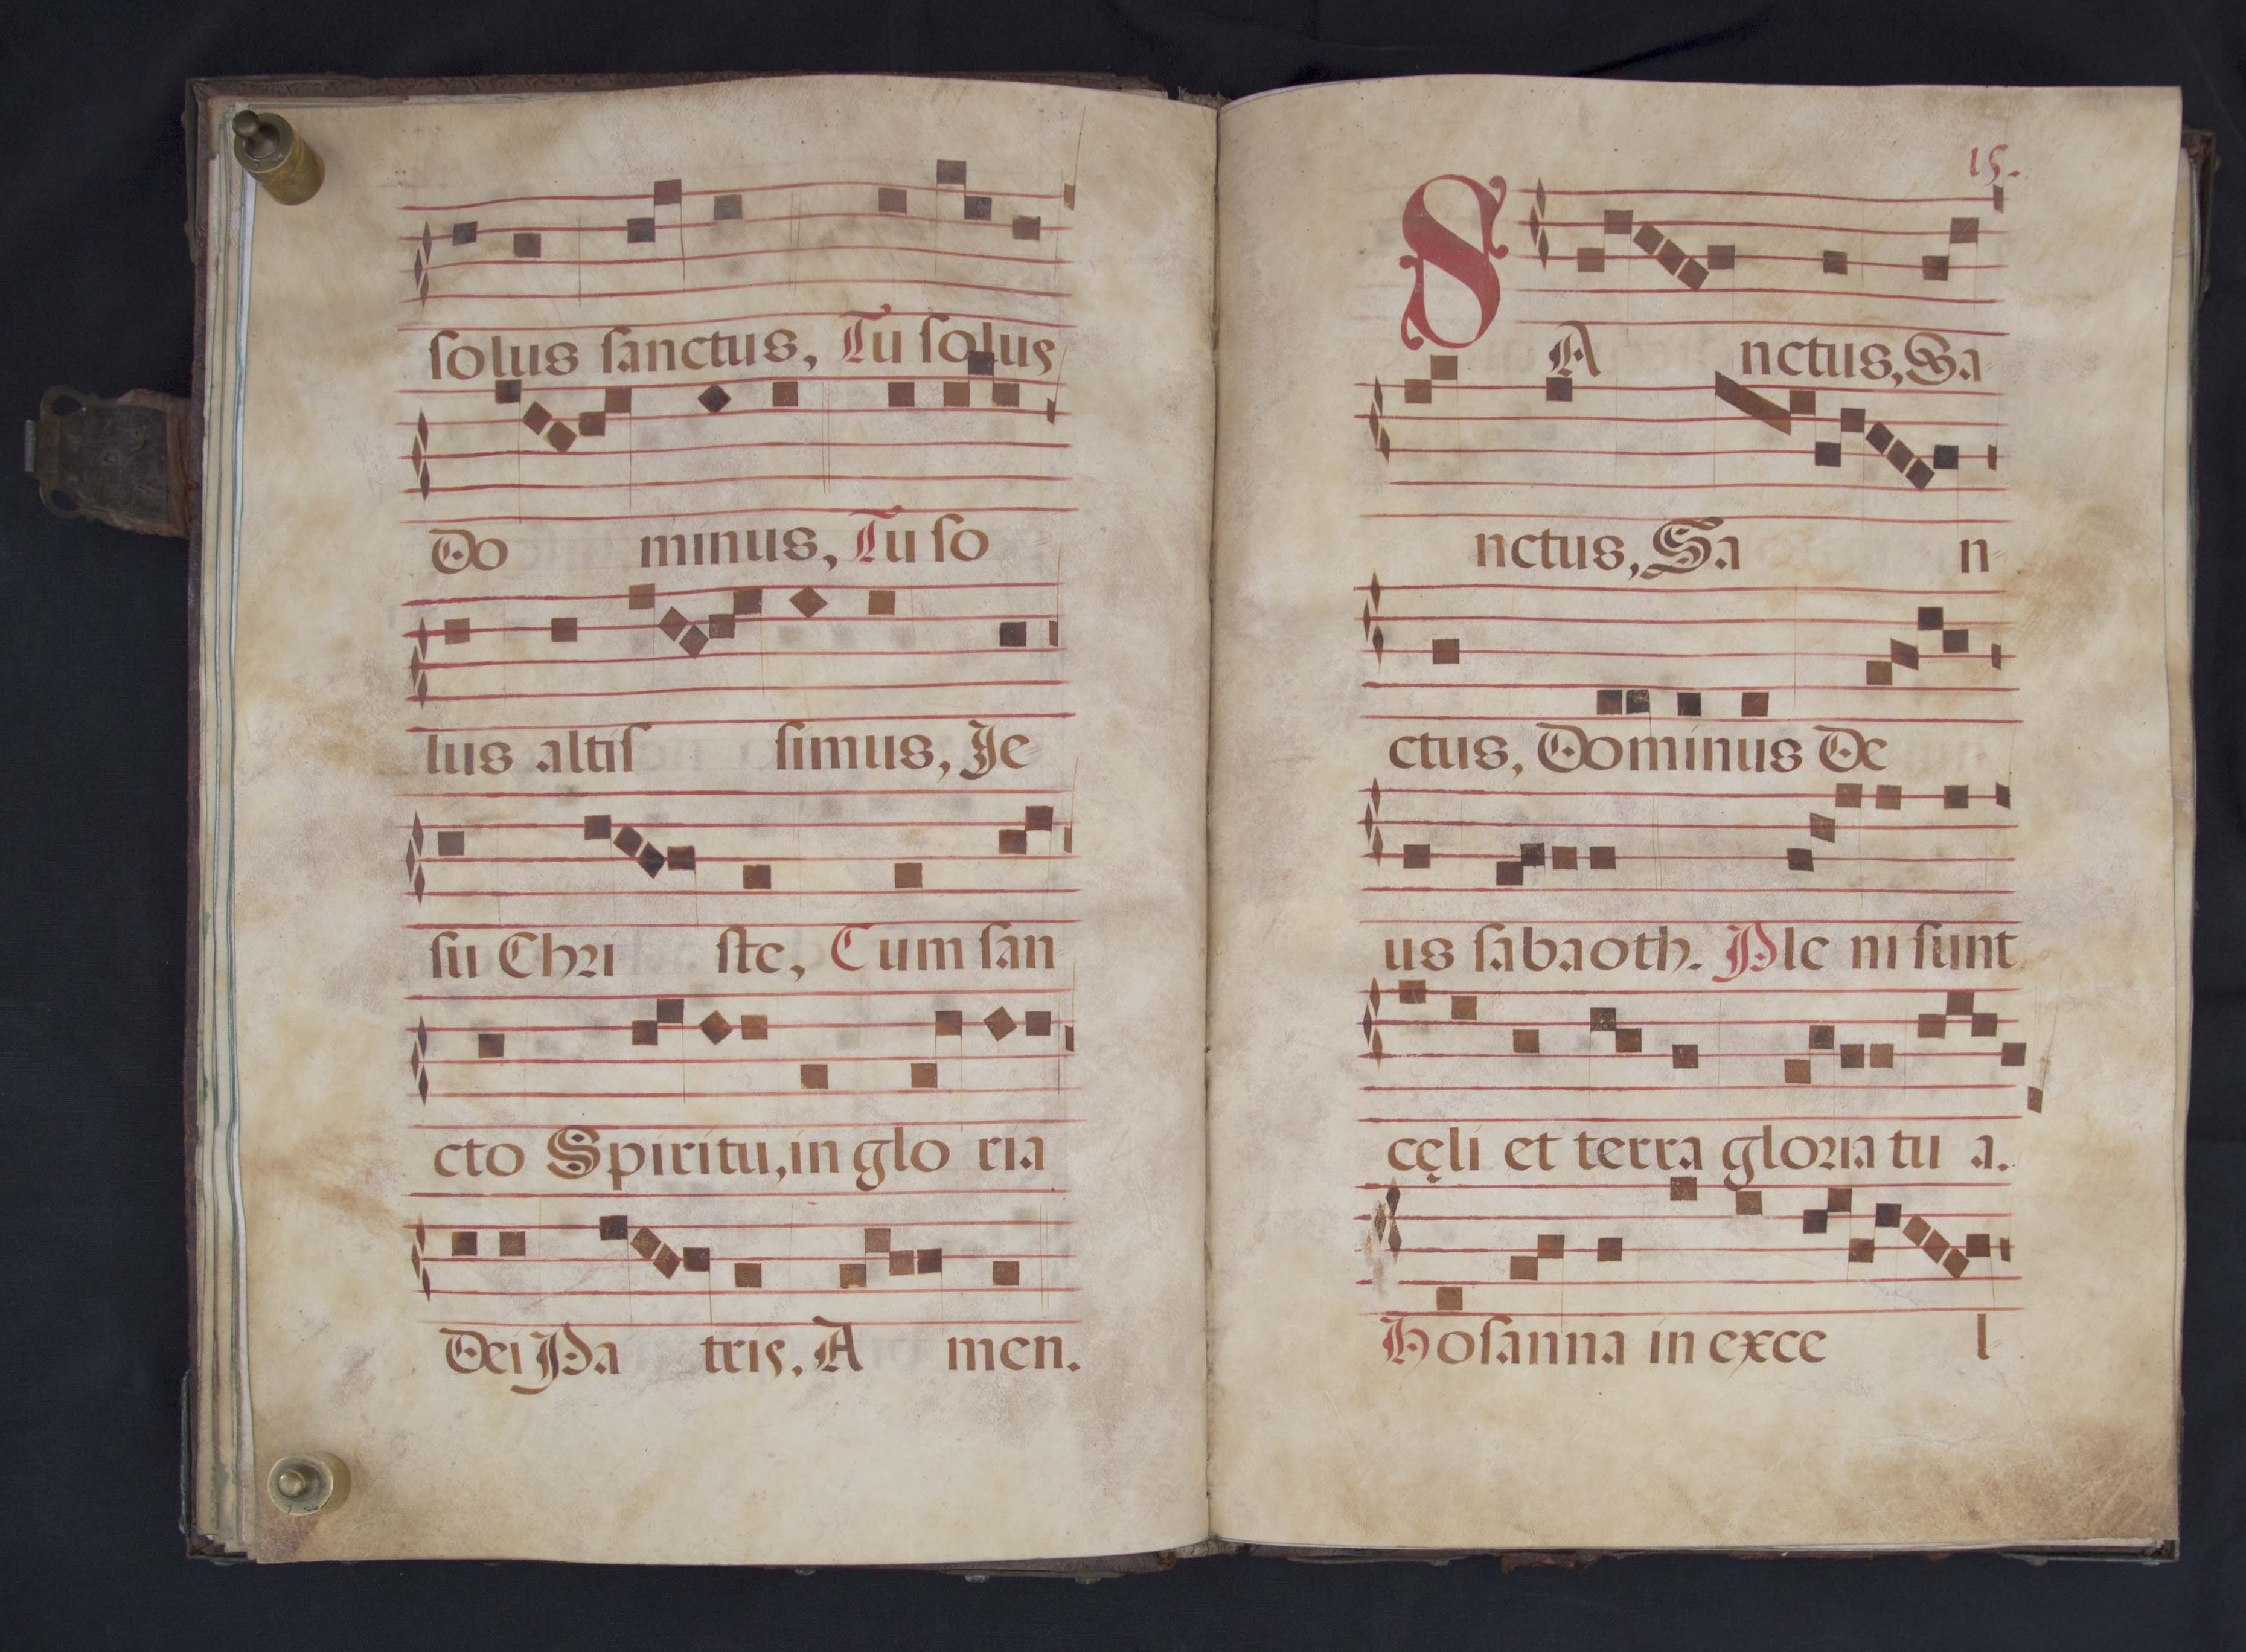 solus sanctus, Tu solus
Do minus, Tu so
lus altis simus, Je-
su Chri ste, Cum san
cto Spiritu, in glo ria
Dei Pa tris. A men.
15.
SA nctus, Sa
nctus, Sa n-
ctus, Dominus De
us sabaoth. Ple ni sunt
cęli et terra gloria tu a.
Hosanna in exce l